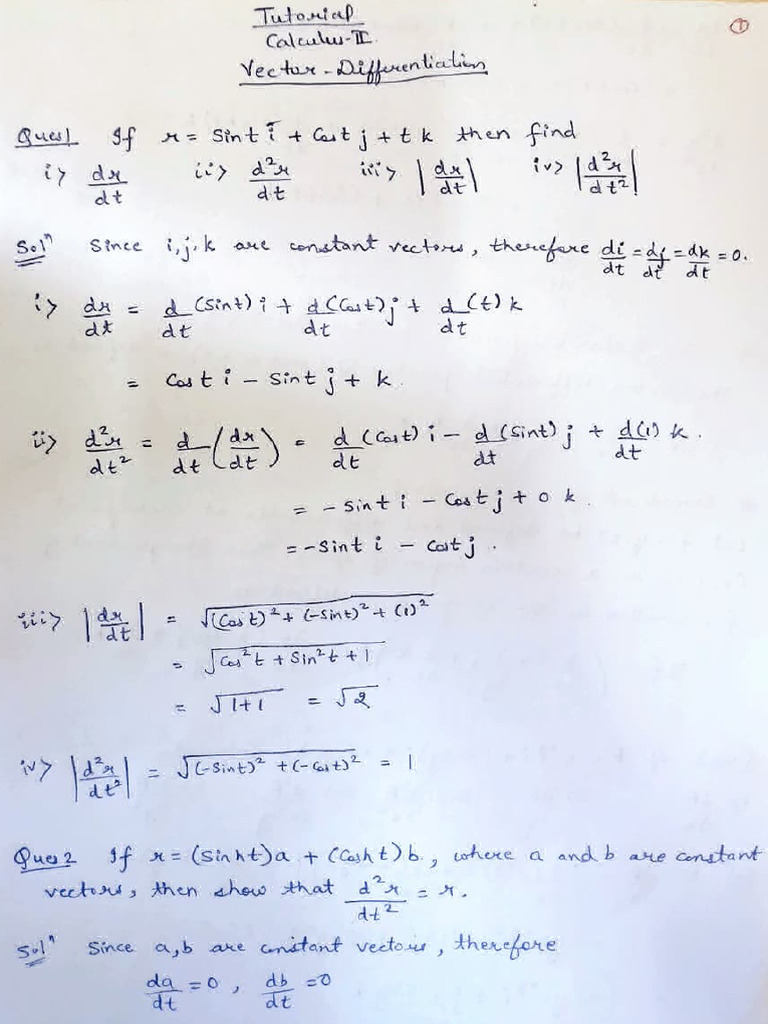 Tutorial
Calculus-II
Vector-Differentiation
①
Ques1 If r = Sint i + Cost j + t k then find
i> dr/dt ii> d²r/dt iii> |dr/dt| iv> |d²r/dt²|
Solⁿ Since i,j,k are constant vectors, therefore di/dt = dj/dt = dk/dt = 0.
i> dr/dt = d/dt (Sint) i + d/dt (Cost) j + d/dt (t) k
= Cost i - Sint j + k.
ii> d²r/dt² = d/dt (dr/dt) = d/dt (Cost) i - d/dt (Sint) j + d(1)/dt k.
= - Sint i - Cost j + 0 k.
= - Sint i - Cost j.
iii> |dr/dt| = √((Cost)² + (-Sint)² + (1)²
= √(Cos²t + Sin²t + 1)
= √(1+1) = √2
iv> |d²r/dt²| = √((-Sint)² + (-Cost)²) = 1
Ques 2 If r = (Sinht)a + (Cosht)b, where a and b are constant
vectors, then show that d²r/dt² = r.
Solⁿ Since a,b are constant vectors, therefore
da/dt = 0, db/dt = 0